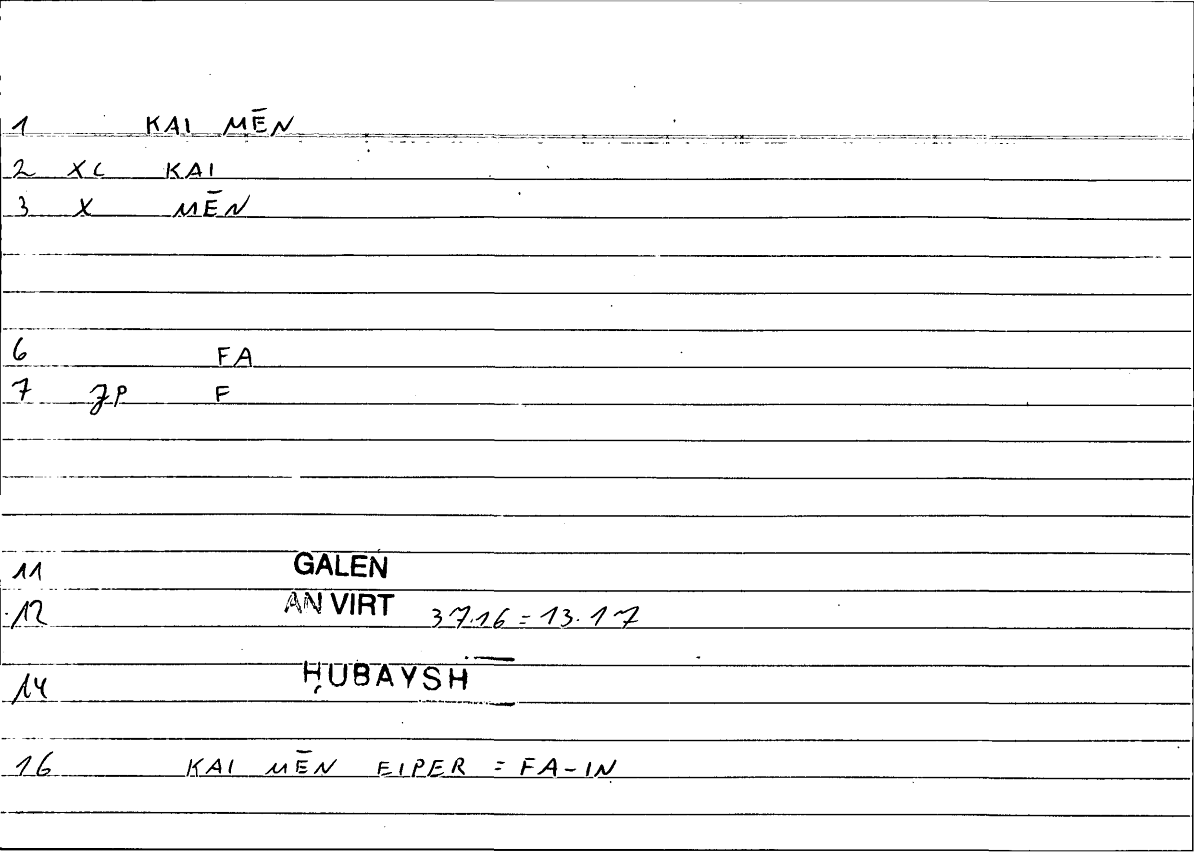 1 KAI MĒN
2 XC KAI
3 X MĒN
6 FA
7 ZP F
11 GALEN
12 AN VIRT 37.16 = 13.17
14 ḤUBAYSH
16 KAI MĒN EIPER = FA-IN